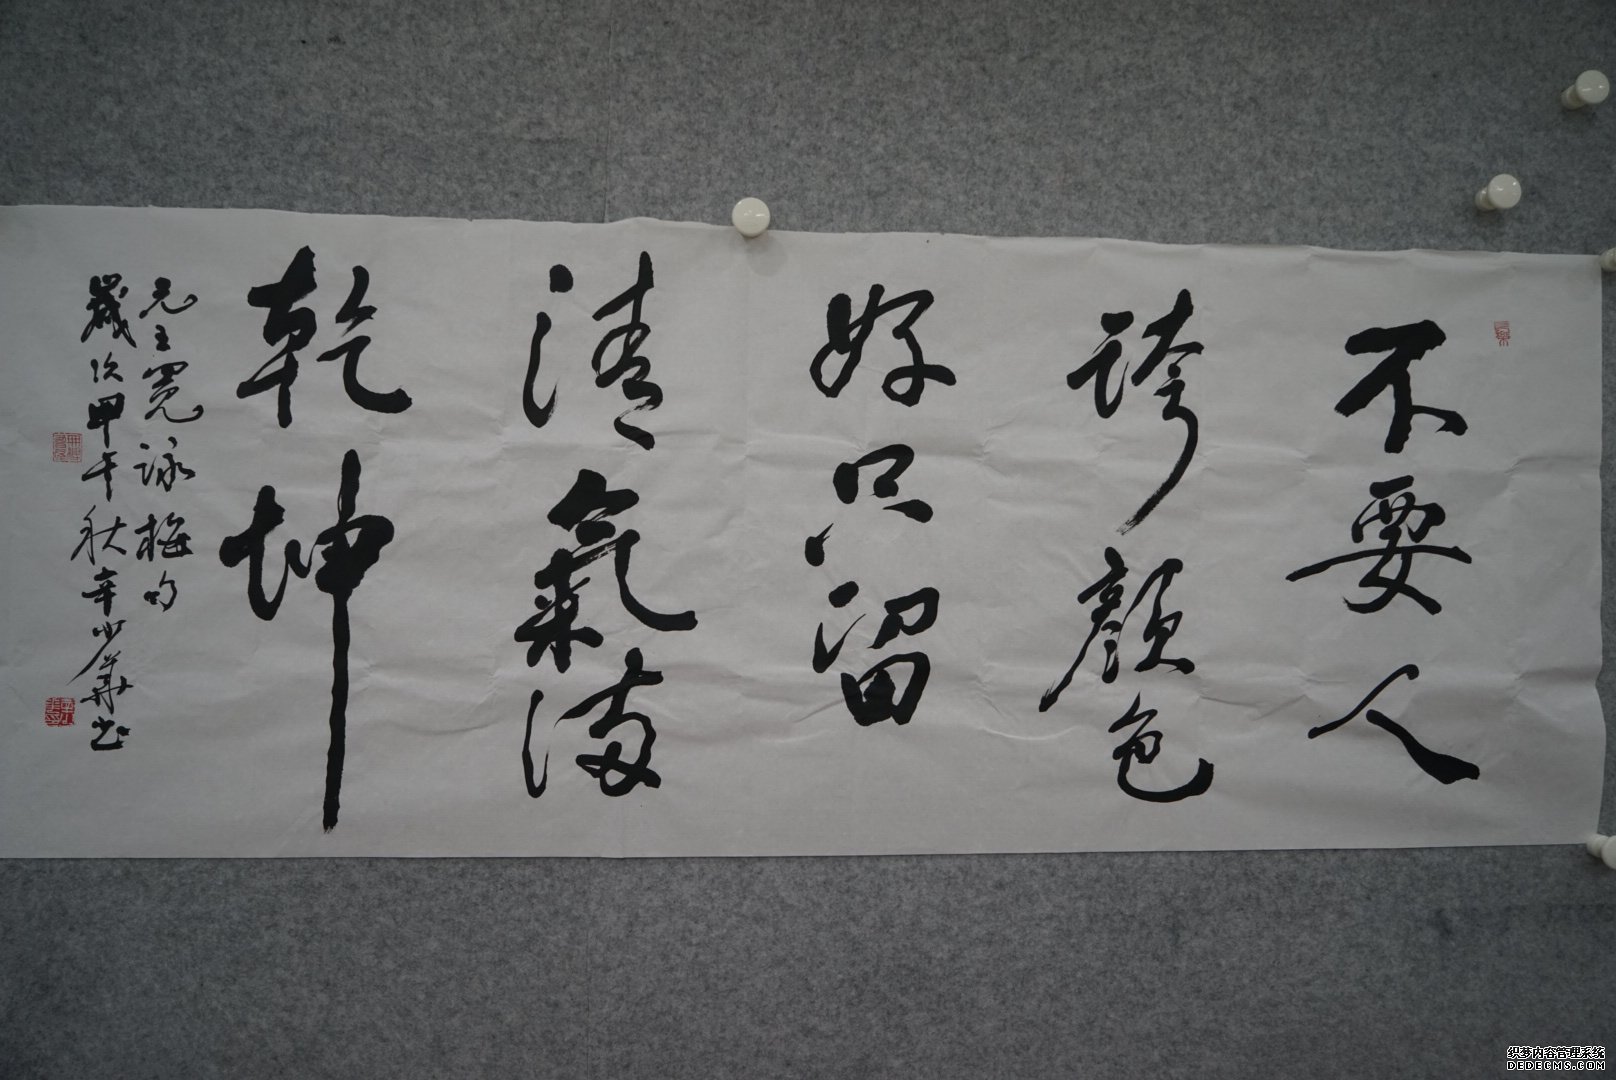 不要人
誇顔色
好只留
清氣滿
乾坤
元王冕詠梅句
歲次甲午秋辛少華书
织梦内容管理系统
DEDECMS.COM